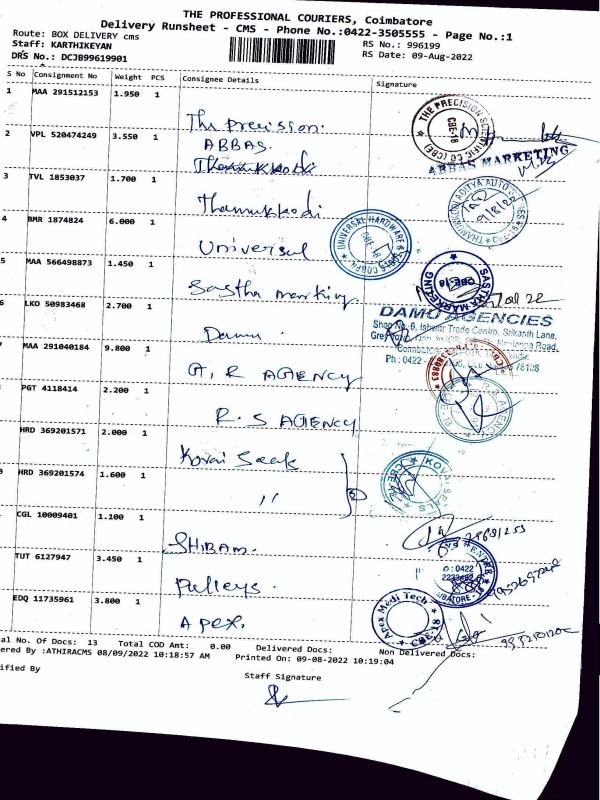 THE PROFESSIONAL COURIERS, Coimbatore
Delivery Runsheet - CMS - Phone No.:0422-3505555 - Page No.:1
Route: BOX DELIVERY cms
RS No.: 996199
Staff: KARTHIKEYAN
RS Date: 09-Aug-2022
DRS No.: DCJB99619901
S No Consignment No Weight PCS Consignee Details Signature
1 MAA 291512153 1.950 1
The precision.
THE PRECISION SCIENTIFIC CO (CBE) CBE-18
2 VPL 520474249 3.550 1
ABBAS.
ABBAS MARKETING
3 TVL 1853037 1.700 1
Thamukkodi
ADITYA AUTO
9/8/22
4 BMR 1874824 6.000 1
Universal
UNIVERSAL HARDWARE &
CBE-18
5 MAA 566498873 1.450 1
Sastha marking.
SASTHA MARKETING
CBE-18
6 LKO 50983468 2.700 1
Damu.
DAMU AGENCIES
Shop No. 6, Ishwar Trade Centre, Srikanth Lane,
Road,
Ph : 0422 -
7 MAA 291040184 9.800 1
G, R AGENCY
PGT 4118414 2.200 1
R. S AGENCY
HRD 369201571 2.000 1
Kovai Seals
KOVAI SEALS
HRD 369201574 1.600 1
"
CGL 10009401 1.100 1
SHIBAM.
TUT 6127947 3.450 1
Pulleys.
: 0422
EDQ 11735961 3.800 1
Apex.
Apex Medi Tech
CBE-18
al No. Of Docs: 13 Total COD Amt: 0.00 Delivered Docs: Non Delivered Docs:
ered By :ATHIRACMS 08/09/2022 10:18:57 AM Printed On: 09-08-2022 10:19:04
ified By
Staff Signature